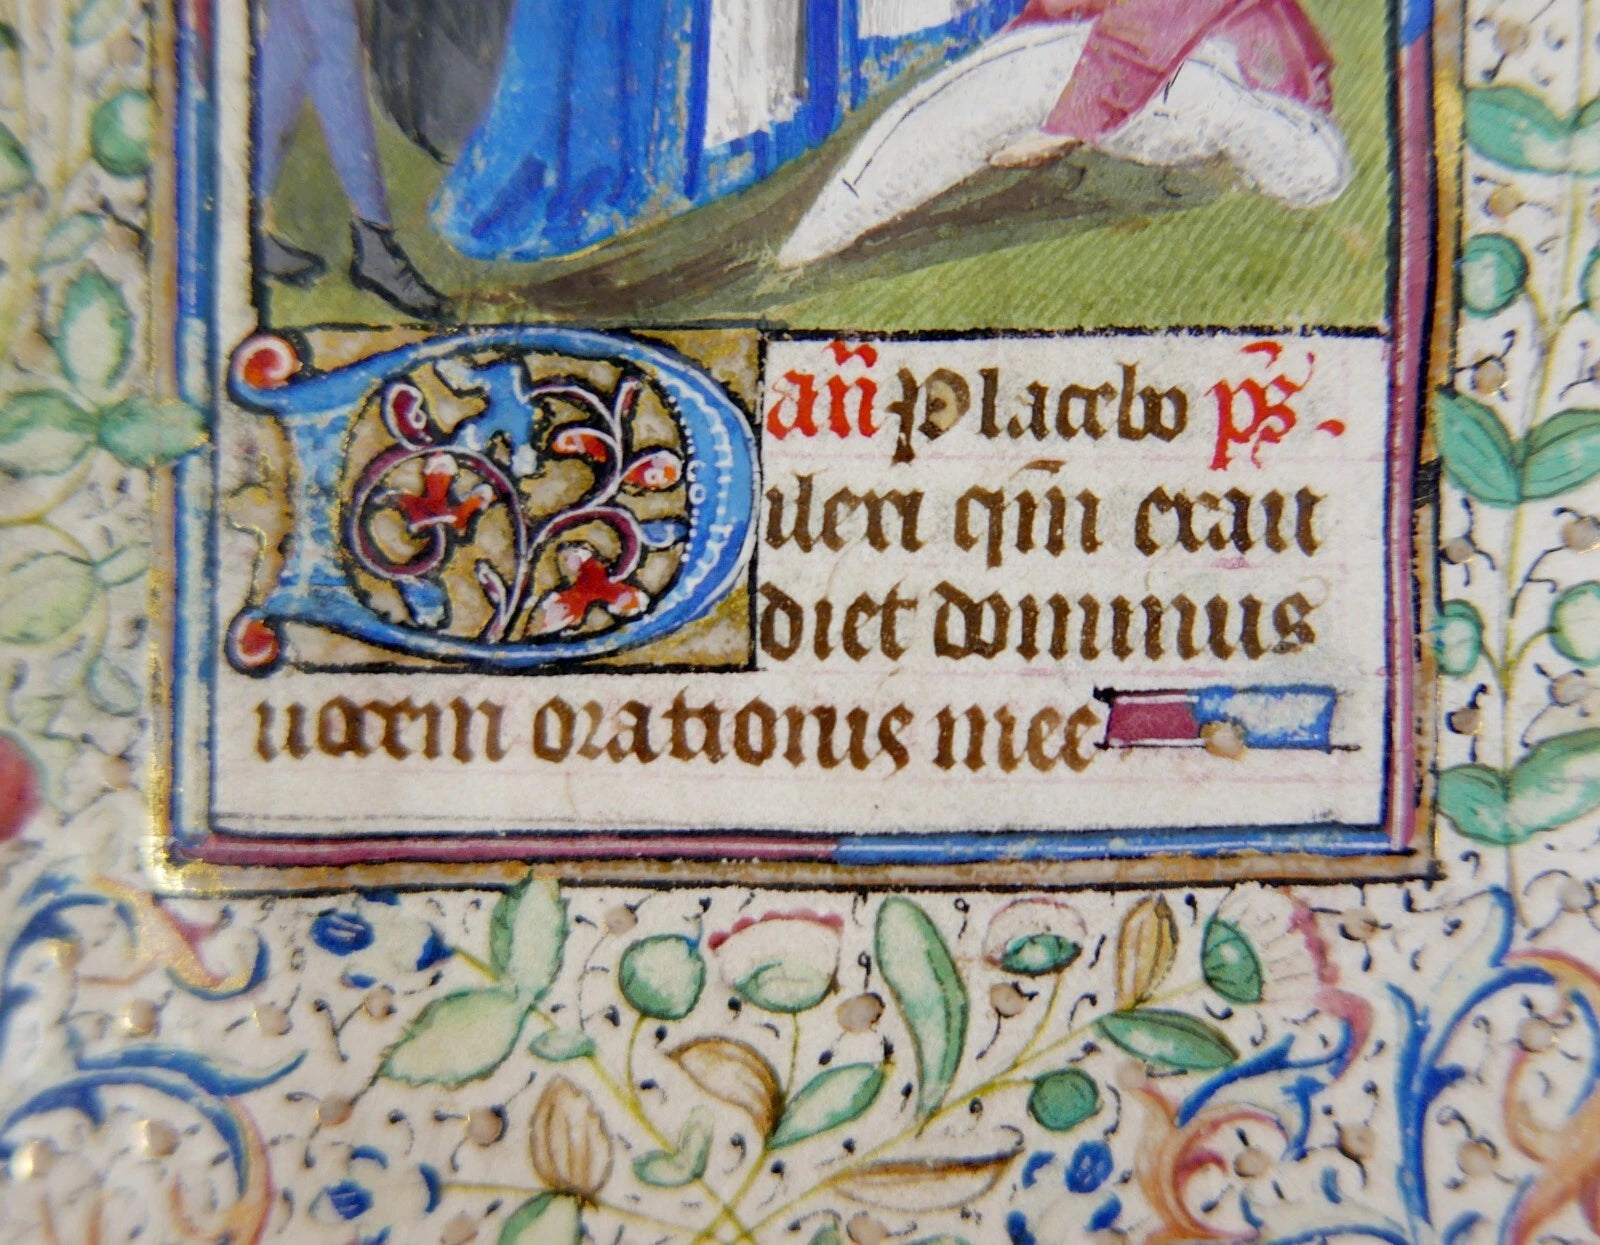 Dan̄ Placebo ps̄.
ilexi qm̄ exau
diet dominus
uocem orationis mee